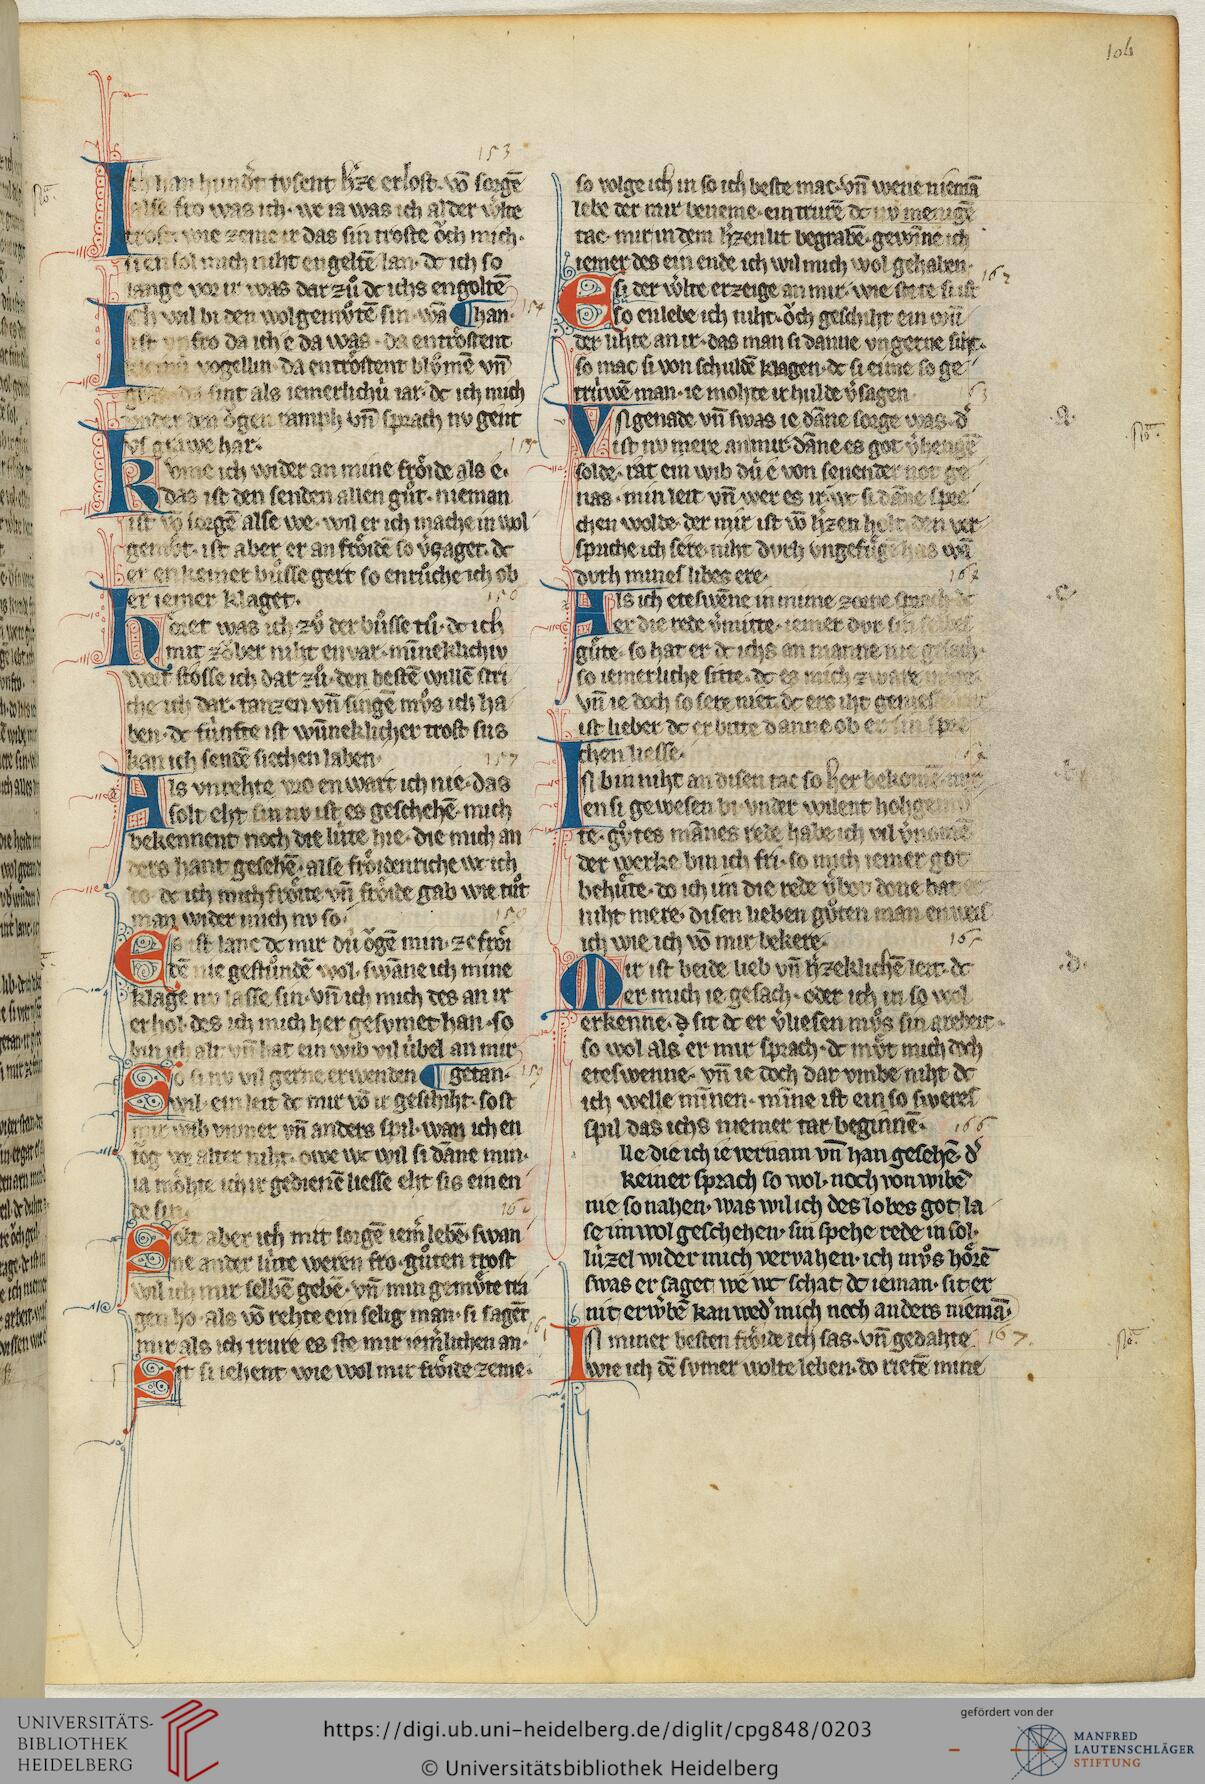 104
153
Ich han hund't tvsent h'ze erlost· võ sorgẽ
alse fro was ich· we ia was ich al der w'lte
trost· wie zeme ir das sin troste ŏch mich·
si en sol mich niht engeltẽ lan· dc ich so
lange vor ir was dar zů dc ichs engoltẽ
Ich wil bi den wolgemvͦtẽ sin· wã han·
154
ist vnfro da ich e da was· da entrŏstent
kleinú vogellin· da entrŏstent blůmẽ vñ
gras· da sint als iemerlichú iar· dc ich mich
vnder den ŏgen ramph vñ sprach nv gent
vs gra we har·
155
Kvme ich wider an mine frŏide als e·
das ist den senden allen gůt· nieman
ist võ sorgẽ alse we· wil er ich mache in wol
gemůt· ist aber er an frŏidẽ so v'zaget· dc
er enkeiner bůsse gert so enrůche ich ob
er iemer klaget·
156
Hŏret was ich zů der bůsse tů· dc ich
mit zŏber niht envar· miñeklichiv
wort stosse ich dar zů· den bestẽ willẽ stri
che ich dar· tanzen vñ singẽ mvͦs ich ha
ben· dc fúnfte ist wũneklicher trost sus
kan ich sendẽ siechen laben·
157
Als vnrehte wo enwart ich nie· das
solt eht sin nv ist es geschehẽ· mich
bekennent noch die lúte hie· die mich an
ders hant gesehẽ· alse frŏidenriche wc ich
do· dc ich mich frŏite vñ frŏide gab wie tůt
man wider mich nv so·
158
Es ist lanc dc mir dú ŏgẽ min· ze frŏi
dẽ nie gestůndẽ wol· swãne ich mine
klage nv lasse sin· vñ ich mich des an ir
erhol· des ich mich her gesvmet han· so
bin ich alt vñ hat ein wib vil úbel an mir
So si nv vil gerne erwenden getan·
159
wil· ein leit dc mir võ ir geschiht· so ist
mir wib vnmer vñ anders spil· wan ich en
tŏg vor alter niht· owe wc wil si dãne min·
ia mŏhte ich ir gedienẽ liesse eht sis ein en
de sin·
160
Solt aber ich mit sorgẽ iem' lebẽ· swan
ne ander lúte weren fro· gůten trost
wil ich mir selbẽ gebẽ· vñ min gemůte tra
gen ho· als võ rehte ein selig man· si sagẽt
161
mir als ich trure es ste mir iem'lichen an·
Sit si iehent wie wol mir frŏide zeme·
so volge ich in so ich beste mac· vñ wene niemã
lebe der mir beneme· ein trurẽ dc nv menigẽ
tac· mir in dem h'zen lit begrabẽ· gewiñe ich
iemer des ein ende ich wil mich wol gehaben·
162
Es si der w'lte erzeige an mir· wie stete si ist
so enlebe ich niht· ŏch geschiht ein
der lihte an ir· das man si danne vngerne siht·
so mac si von schuldẽ klagen· dc si eime so ge
trúwẽ man· ie mohte ir hulde v'sagen·
163
Vf genade vñ swas ie dãne sorge was· d'
ist nv mere an mir· dãne es got v'hengẽ
solde· rat ein wib dú e von senender not ge
nas· min leit vñ wer es ir· wc si dãne spre
chen wolde· der mir ist võ h'zen holt· den ver
spriche ich sere· niht dvrh vngefůgẽ has wã
dvrh mines libes ere·
164
Als ich eteswẽne in mime zorne sprach dc
er die rede v'mitte· iemer dvr sin selbes
gůte· so hat er dc ichs an manne nie gesach·
so iemerliche sitte· dc es mich zware
vñ ie doch so sere niet· dc ers iht geniesse
ist lieber dc er bitte danne ob er sin spre
chen liesse·
165
Ich bin niht an disen tac so her bekomẽ· mir
en si gewesen bi· vnder wilent hohgemv
te· gůtes mãnes rede habe ich vil v'nomẽ
der werke bin ich fri· so mich iemer got
behůte· do ich im die rede v'bot done bat er
niht mere· disen lieben gůten man en weis
ich wie ich võ mir bekere·
165
Mir ist beide lieb vñ h'zeklichẽ leit· dc
er mich ie gesach· oder ich in so wol
erkenne· d' sit dc er v'liesen mvͦs sin arebeit·
so wol als er mir sprach· dc mvͦt mich doch
eteswenne· vñ ie doch dar vmbe niht dc
ich welle miñen· miñe ist ein so sweres
spil das ichs niemer tar begiñẽ·
166
lle die ich ie vernam vñ han gesehẽ· d'
keiner sprach so wol· noch von wibẽ
nie so nahen· was wil ich des lobes got la
se im wol geschehen· sin spehe rede in sol·
lúzel wider mich vervahen· ich mvͦs hŏrẽ
swas er saget· we wc schat dc ieman· sit er
niť erw'bẽ kan wed' mich noch anders niemã·
167·
In miner besten frŏide ich sas· vñ gedahte
wie ich dẽ svmer wolte leben· do rietẽ mine
·a·
·c·
·b·
·d·
UNIVERSITÄTS-
BIBLIOTHEK
HEIDELBERG
https://digi.ub.uni-heidelberg.de/diglit/cpg848/0203
© Universitätsbibliothek Heidelberg
gefördert von der
MANFRED
LAUTENSCHLÄGER
STIFTUNG